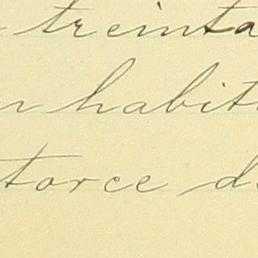 treinta
n habit
torce d